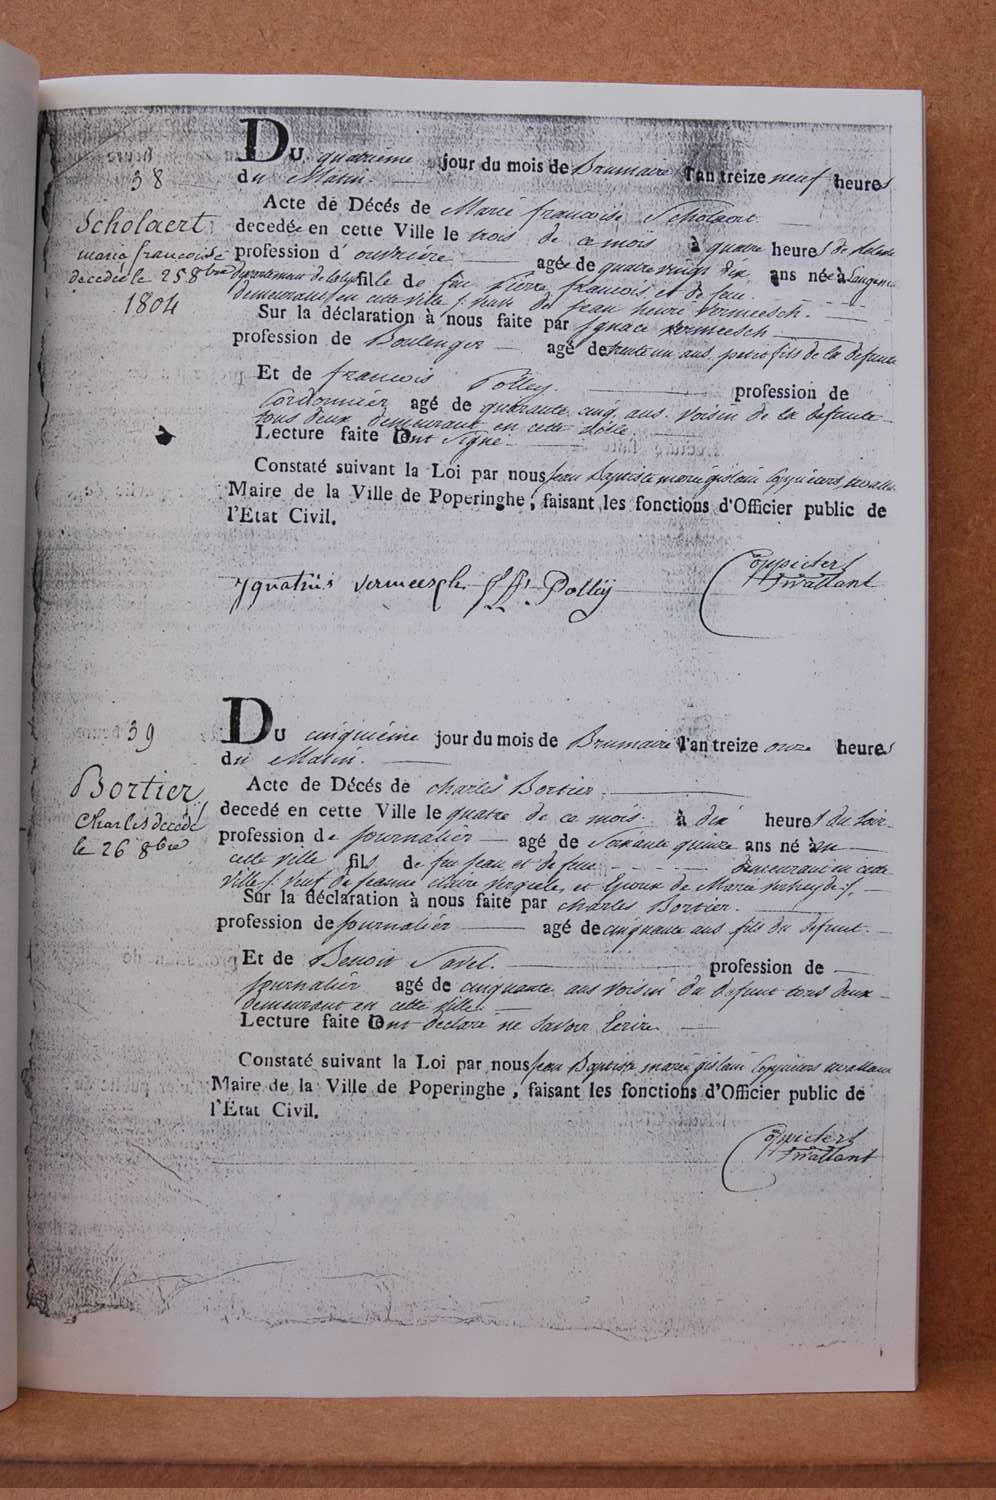 38
Scholaert
maria francoise
decedée le 25 8bre
1804
Du quatrieme jour du mois de Brumaire l'an treize neuf heures
du Matin.
Acte de Décés de Marie francoise Scholaert
decedée en cette Ville le trois de ce mois à quatre heures de
profession d'ouvrière agée de quatre vingt dix ans née à
Departement de la Lys fille de feu Pierre francois et de feu
demeurant en cette ville /: veuve de jean henri vermeesch.
Sur la déclaration à nous faite par Ignace vermeesch
profession de Boulenger agé de trente un ans. petit fils de la defunte
Et de francois Polley. profession de
Cordonnier agé de quarante cinq ans. voisin de la defunte
tous deux demeurant en cette ville.
Lecture faite ont signé.
Constaté suivant la Loi par nous jean Baptiste marie gislain Coppieters wallant
Maire de la Ville de Poperinghe, faisant les fonctions d'Officier public de
l'Etat Civil.
Ignatius vermeesch Polley Coppieters
wallant
39
Bortier
Charles decedé
le 26 8bre
Du cinquiéme jour du mois de Brumaire l'an treize onze heures
du Matin.
Acte de Décés de charles Bortier.
decedé en cette Ville le quatre de ce mois. à dix heures du soir
profession de journalier agé de Soixante quinze ans né en
cette ville fils de feu jean et de feue demeurant en cette
ville /: veuf de jeanne claire et Epoux de Marie
Sur la déclaration à nous faite par charles Bortier.
profession de journalier agé de cinquante ans fils du defunt.
Et de Benoit Savel. profession de
journalier agé de cinquante ans voisin du defunt tous deux
demeurant en cette ville.
Lecture faite ont declaré ne savoir Ecrire
Constaté suivant la Loi par nous jean Baptiste marie gislain Coppieters wallant
Maire de la Ville de Poperinghe, faisant les fonctions d'Officier public de
l'Etat Civil.
Coppieters
wallant